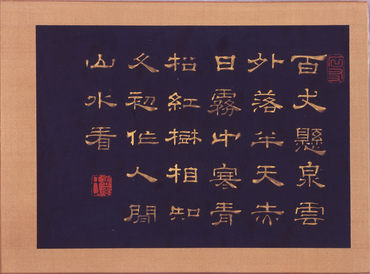 百丈懸泉雲
外落半天赤
日霧中寒青
松紅樹相知
久初作人間
山水看